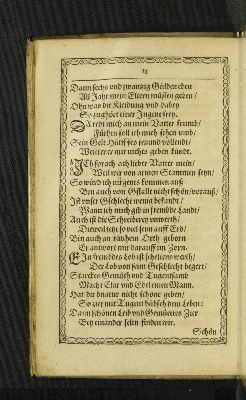 Dann sechs und zwanzig Gülden eben
All Jahr mein Eltern müssen geben/
Ohn was die Kleidung und dabey
So zughört einer Jugent sey.
DA redt mich an mein Vatter frumb/
Führen soll ich mich sehen umb/
Sein Gelt Hülff sey fremd vollendt/
Weiter er mir nichts geben köndt.
ICh sprach ach lieber Vatter mein/
Weil wir von armen Stammen seyn/
So würd ich nirgents kommen auß
Bin auch von Gstalt nicht schön/vorauß/
Ist unser Gschlecht wenig bekandt/
Wann ich mich gib in frembde Landt/
Auch ist die Schreiberey unwerth/
Dieweil jetz so viel seyn auff Erd/
Bin auch an rauhem Orth geborn
Er antwort mir darauff im Zorn.
EIn frembdes Lob ist sehr werth/
Der Lob von seim Geschlecht begert/
Starckes Gemüth und Tugentsamb
Macht Clar und Edel einen Mann.
Hat die Natur nicht schöne geben/
So zier mit Tugent hübsch dein Leben:
Dann schönen Leib und Gemütes Zier
Bey einander selten finden wir.
Schön